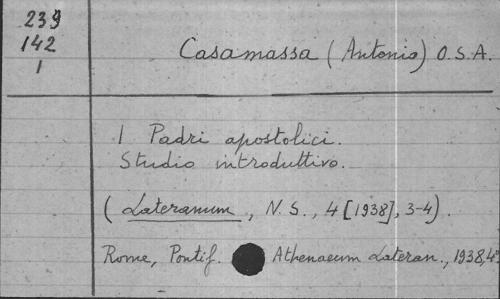 239
142
1
Casamassa (Antonio) O.S.A.
I Padri apostolici.
Studio introduttivo.
(Lateranum, N.S., 4 [1938], 3-4).
Rome, Pontif. Athenaeum Lateran., 1938, 4°